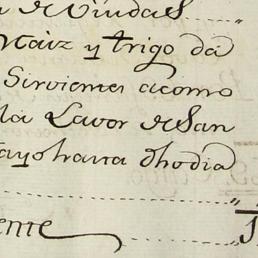 a de Viudas
Maiz y trigo da
Sirvientes acomo
la Lavor de San
Mayo hasta dho dia
ente